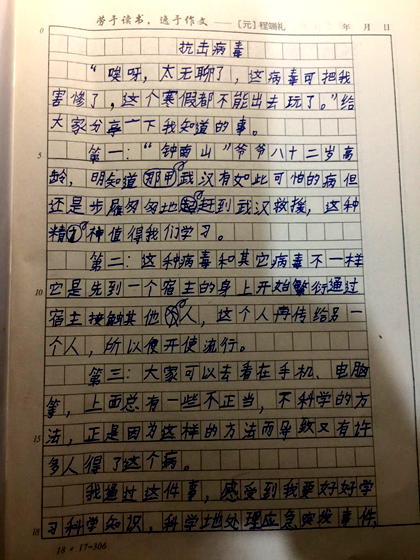 劳于读书，逸于作文 ——［元］程端礼 年 月 日
0
抗击病毒
“唉呀，太无聊了，这病毒可把我
害惨了，这个寒假都不能出去玩了。”给
大家分享一下我知道的事。
5 第一：“钟南山”爷爷八十二岁高
龄，明知道那武汉有如此可怕的病但
还是步履匆匆地赶到武汉救援，这种
精神值得我们学习。
第二：这种病毒和其它病毒不一样
10 它是先到一个宿主的身上开始繁衍通过
宿主接触其他人，这个人再传给另一
个人，所以便开使流行。
第三：大家可以去看在手机、电脑
等，上面总有一些不正当，不科学的方
15 法，正是因为这样的方法而导致又有许
多人得了这个病。
我通过这件事，感受到我要好好学
18 习科学知识，科学地处理应急突发事件，
18 * 17-306